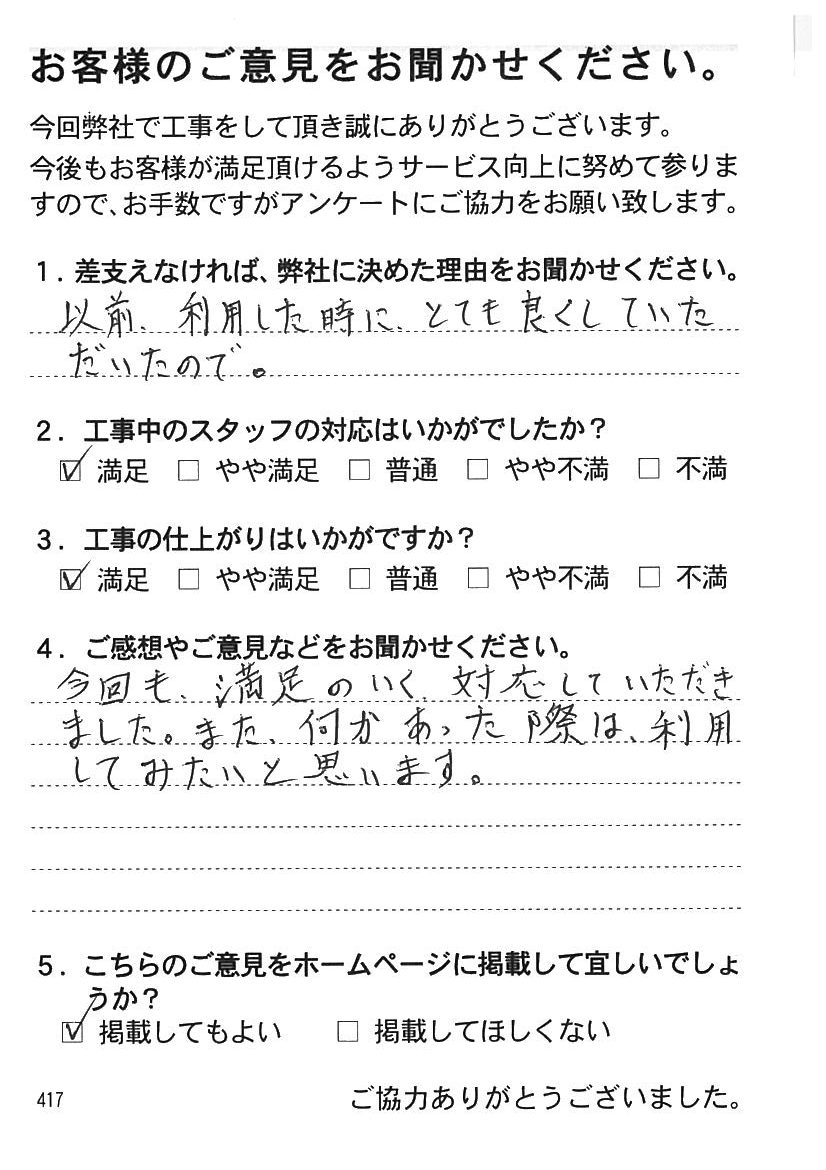 お客様のご意見をお聞かせください。
今回弊社で工事をして頂き誠にありがとうございます。
今後もお客様が満足頂けるようサービス向上に努めて参りま
すので、お手数ですがアンケートにご協力をお願い致します。
1．差支えなければ、弊社に決めた理由をお聞かせください。
以前、利用した時に、とても良くしていた
だいたので。
2．工事中のスタッフの対応はいかがでしたか？
☑ 満足 □ やや満足 □ 普通 □ やや不満 □ 不満
3．工事の仕上がりはいかがですか？
☑ 満足 □ やや満足 □ 普通 □ やや不満 □ 不満
4．ご感想やご意見などをお聞かせください。
今回も、満足のいく、対応していただき
ました。また、何かあった際は、利用
してみたいと思います。
5．こちらのご意見をホームページに掲載して宜しいでしょ
うか？
☑ 掲載してもよい □ 掲載してほしくない
417 ご協力ありがとうございました。